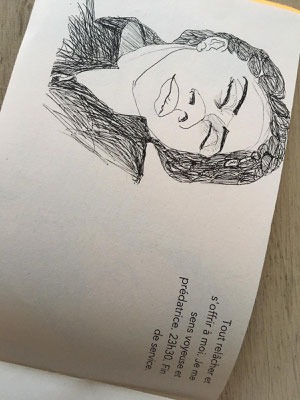 Tout relâcher et
s'offrir à moi. Je me
sens voyeuse et
prédatrice. 23h30. Fin
de service.